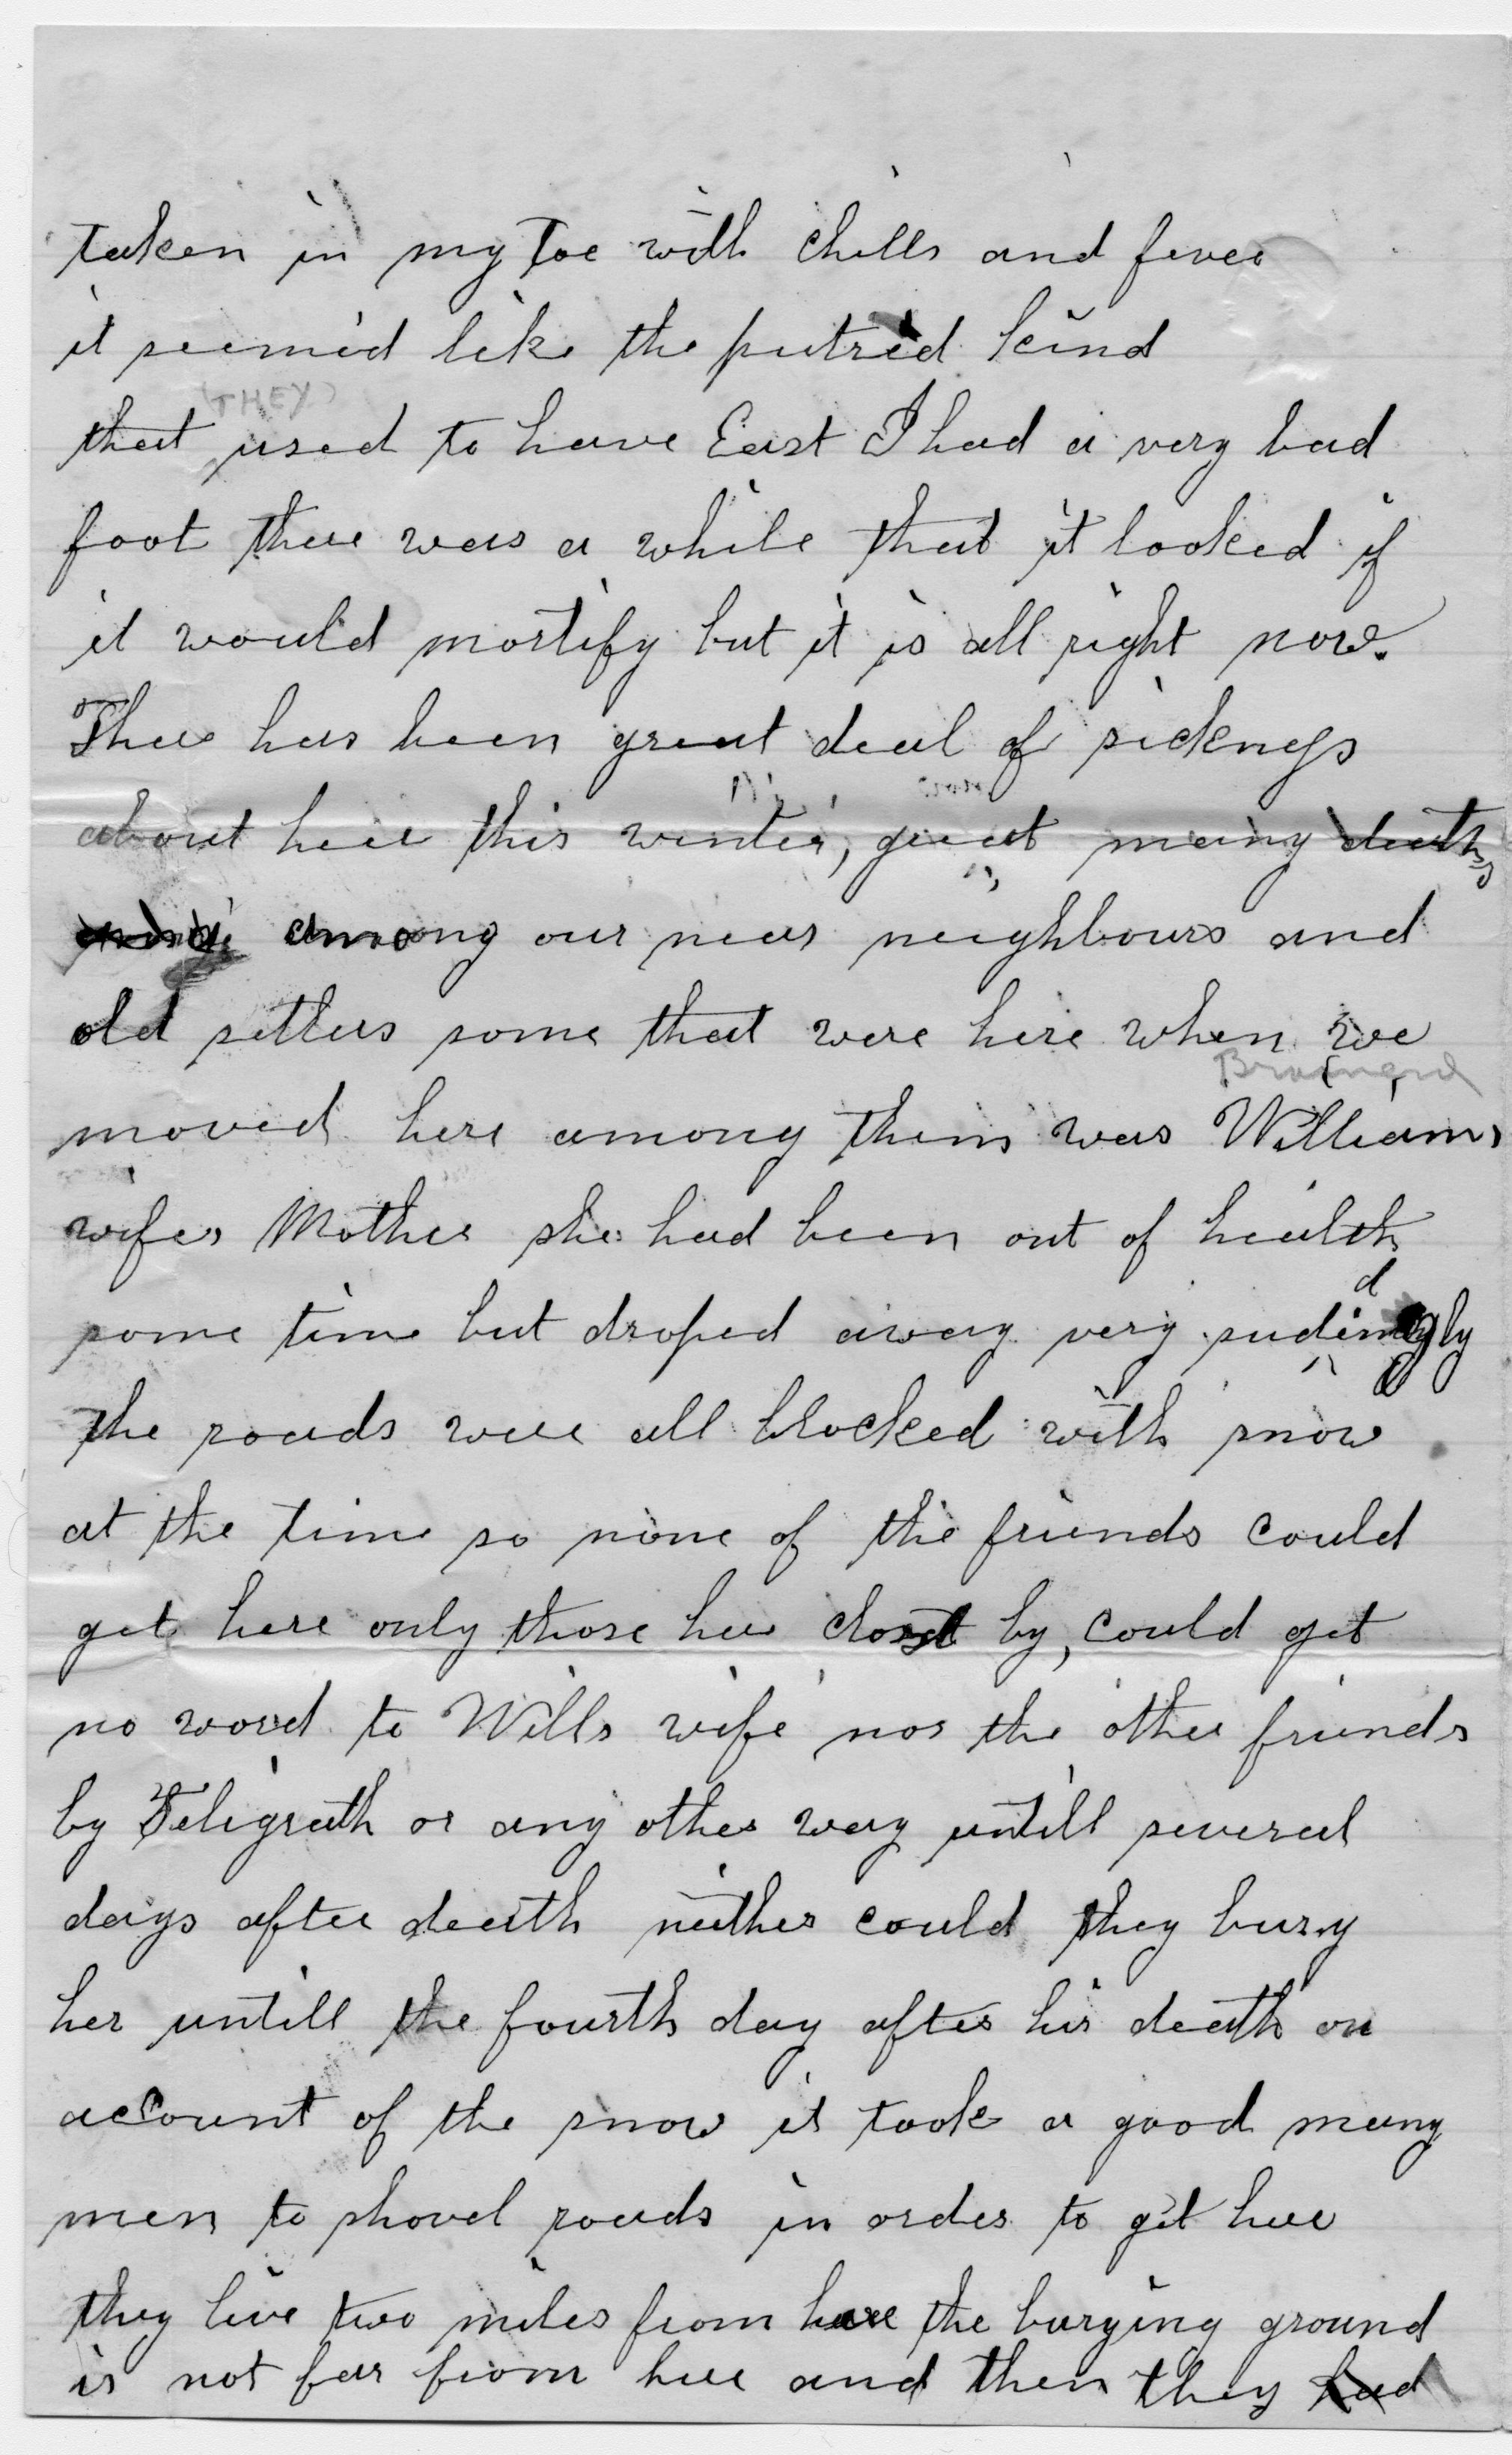 taken in my Toe with chills and fever
it seemed like the putrid kind
(THEY)
that used to have East I had a very bad
foot there was a while that it looked if
it would mortify but it is all right now.
There has been great deal of sickness
about here this winter, great many deaths
among our near neighbours and
old settlers some that were here when we
Brainerd
moved here among them was Williams
wifes Mother she had been out of health
some time but droped away very suddingly
the roads were all blocked with snow
at the time so none of the friends could
get here only those here closst by, could get
no word to Wills wife nor the other friends
by Telegrath or any other way untill several
days after death neither could they bury
her untill the fourth day after hir death on
account of the snow it took a good many
men to shovel roads in order to get here
they live two miles from here the burying ground
is not far from here and then they had